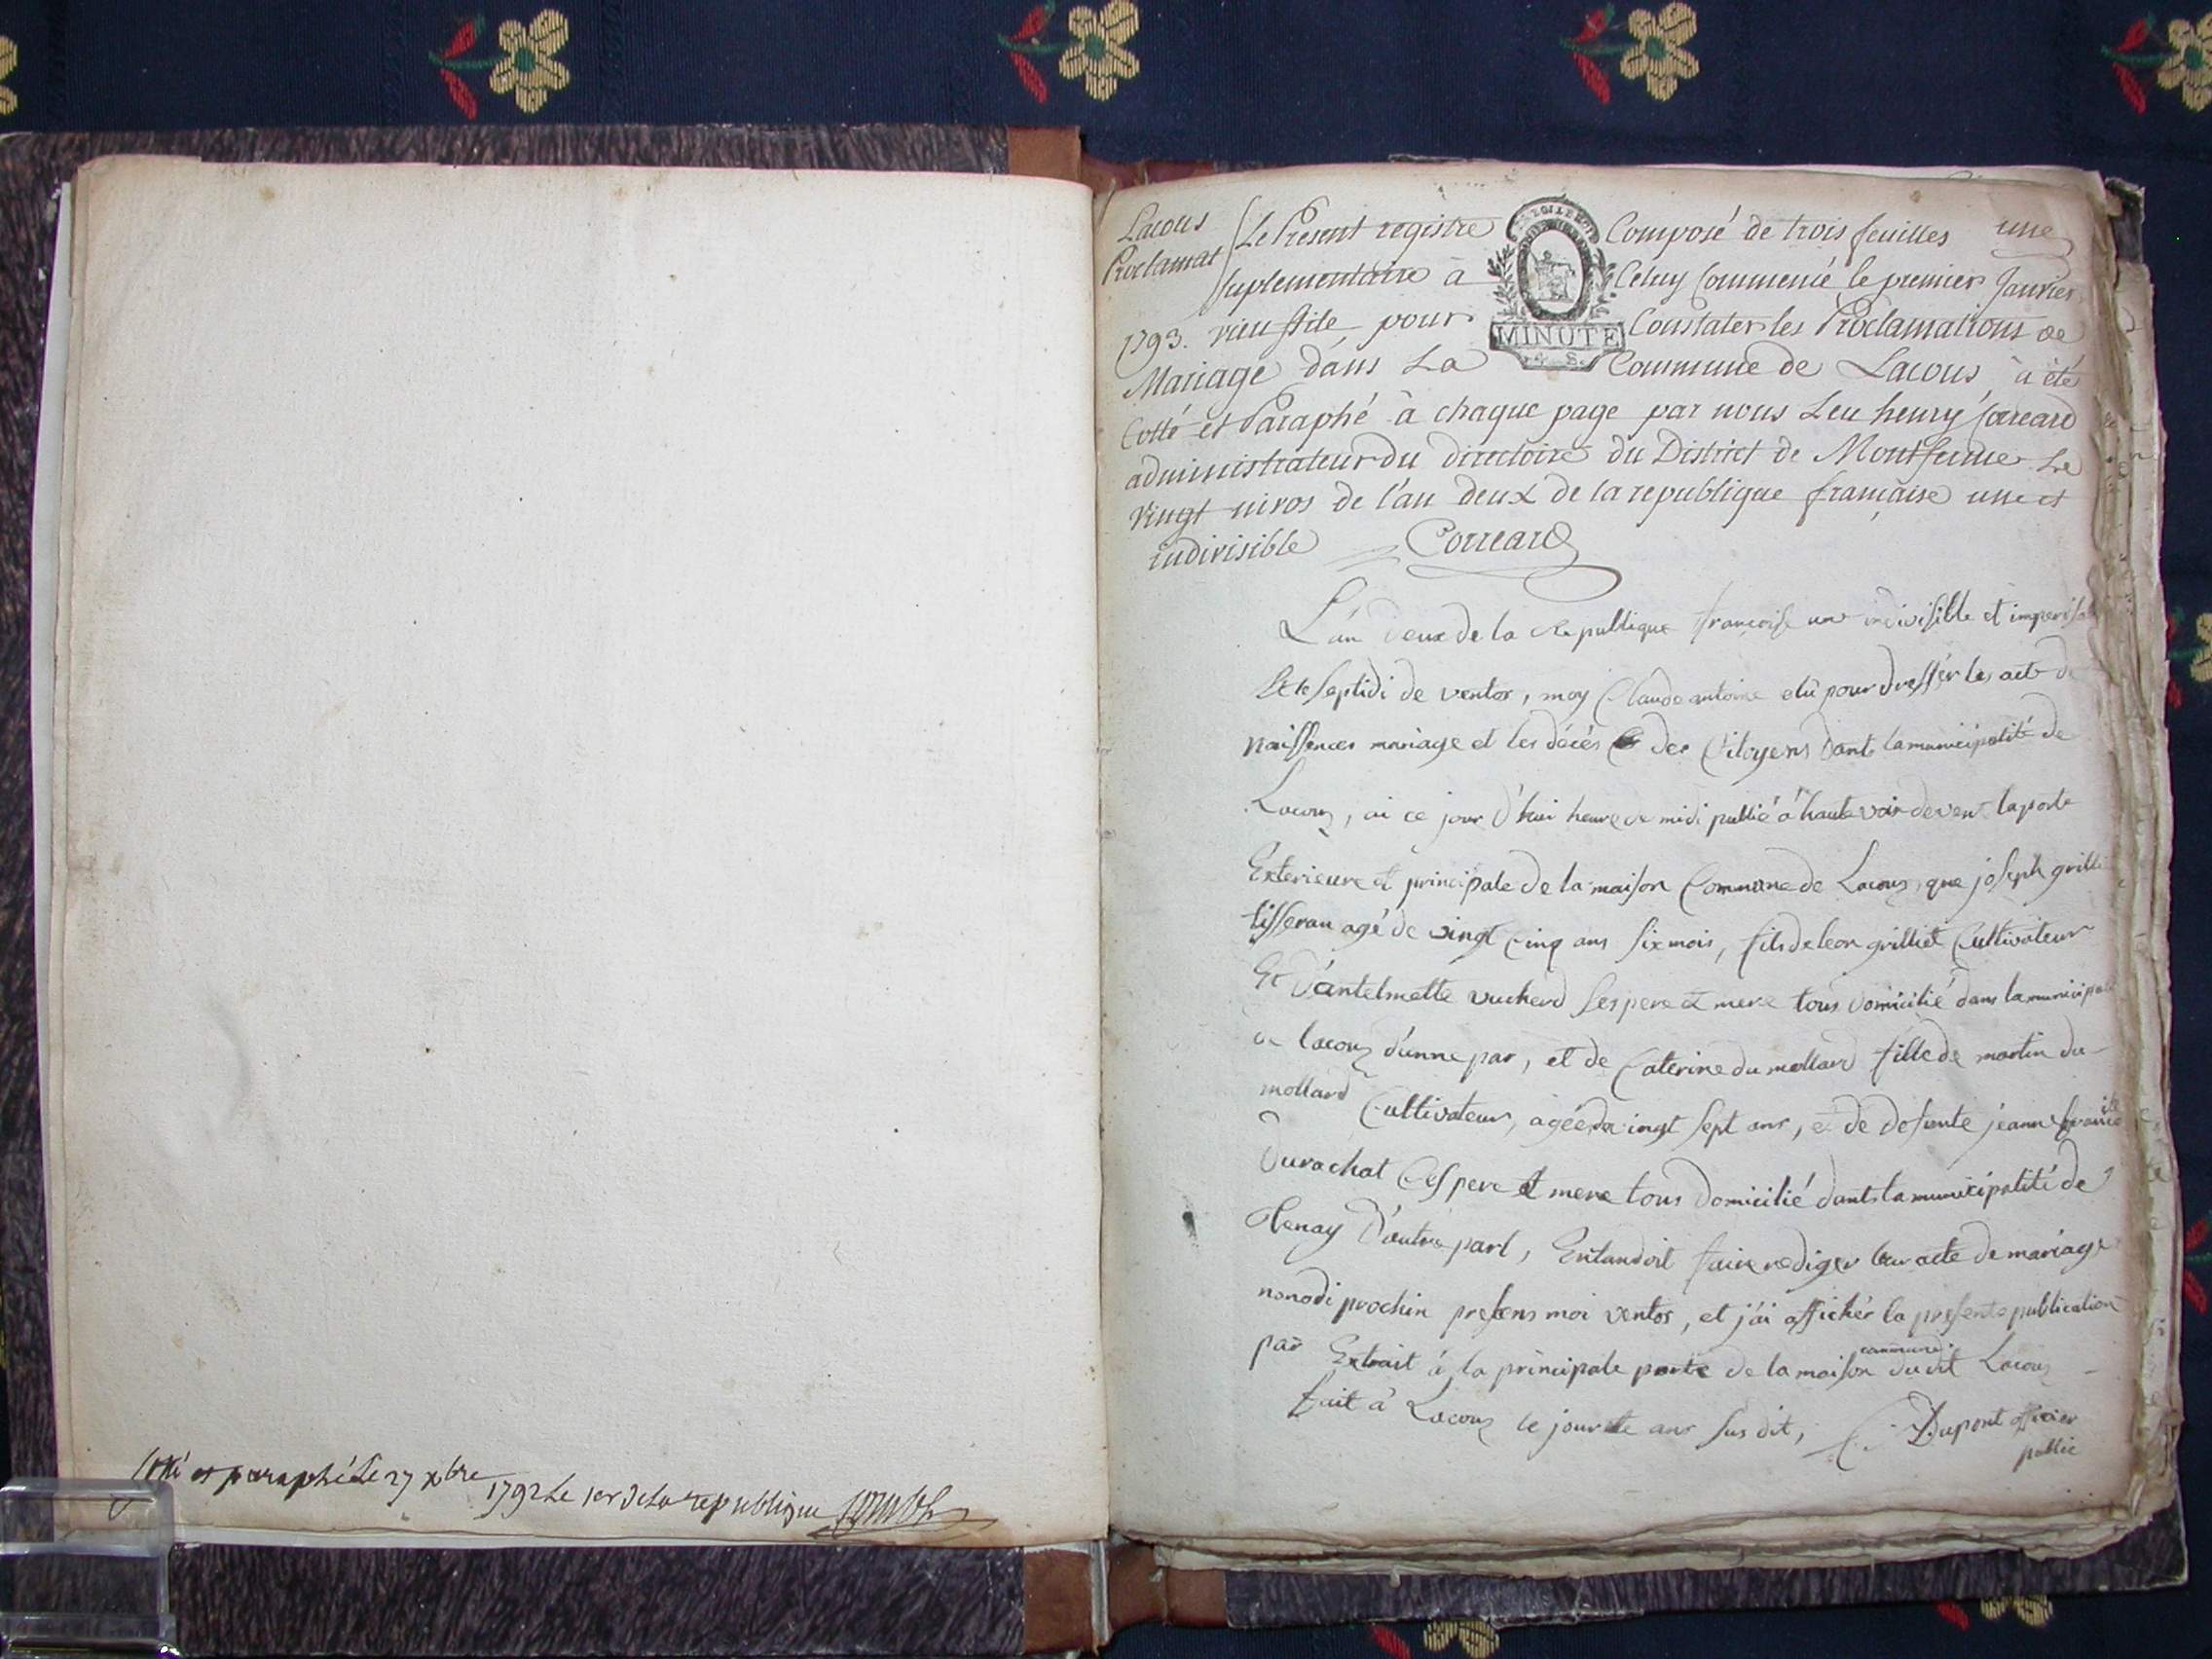 Cotté et paraphé Le 27 xbre 1792 Le 1er de la republique
Lacous
Proclamat
Le Present registre Composé de trois feuilles une
suplementaire à Celuy Commencé le premier Janvier
1793. vieu stile pour Constater les Proclamations de
MINUTE
Mariage dans La Commune de Lacous à été
Cotté et Paraphé à chaque page par nous Leu henry Correard
administrateur du directoire du District de Montferme Le
vingt nivos de l'an deux de la republique française une et
indivisible Correard
L'an deux de la Republique françoise une indivisible et imperisa
Le septidi de ventos, moy Claude antoine elû pour dresser les acte de
naissences mariage et les décés des Citoyens dant la municipalité de
Lacouz, ai ce jour d'hui heure de midi publié á haute voix devent la porte
Exterieure et principale de la maison Commune de Lacouz, que joseph grilli
tisseran agé de vingt Cinq ans six mois, fils de leon grilliet Cultivateur
Et d'antelmette vucherd ses pere et mere tous domicilié dans la municipal
de lacouz d'unne par, et de Caterine du mollard fille de martin du
mollard Cultivateur, agée de vingt sept ans, et de defunte jeanne
Durachat Ces pere et mere tous domicilié dants la municipalité de
tenay D'autre part, Entandoit faire rediger leur acte de mariage
nonodi prochin presens moi ventos, et j'ai affichér la presente publication
par Extrait á la principale porte de la maison commune dudit Lacouz
fait á Lacouz le jour et ans sus dit, C. Dupont officier
public